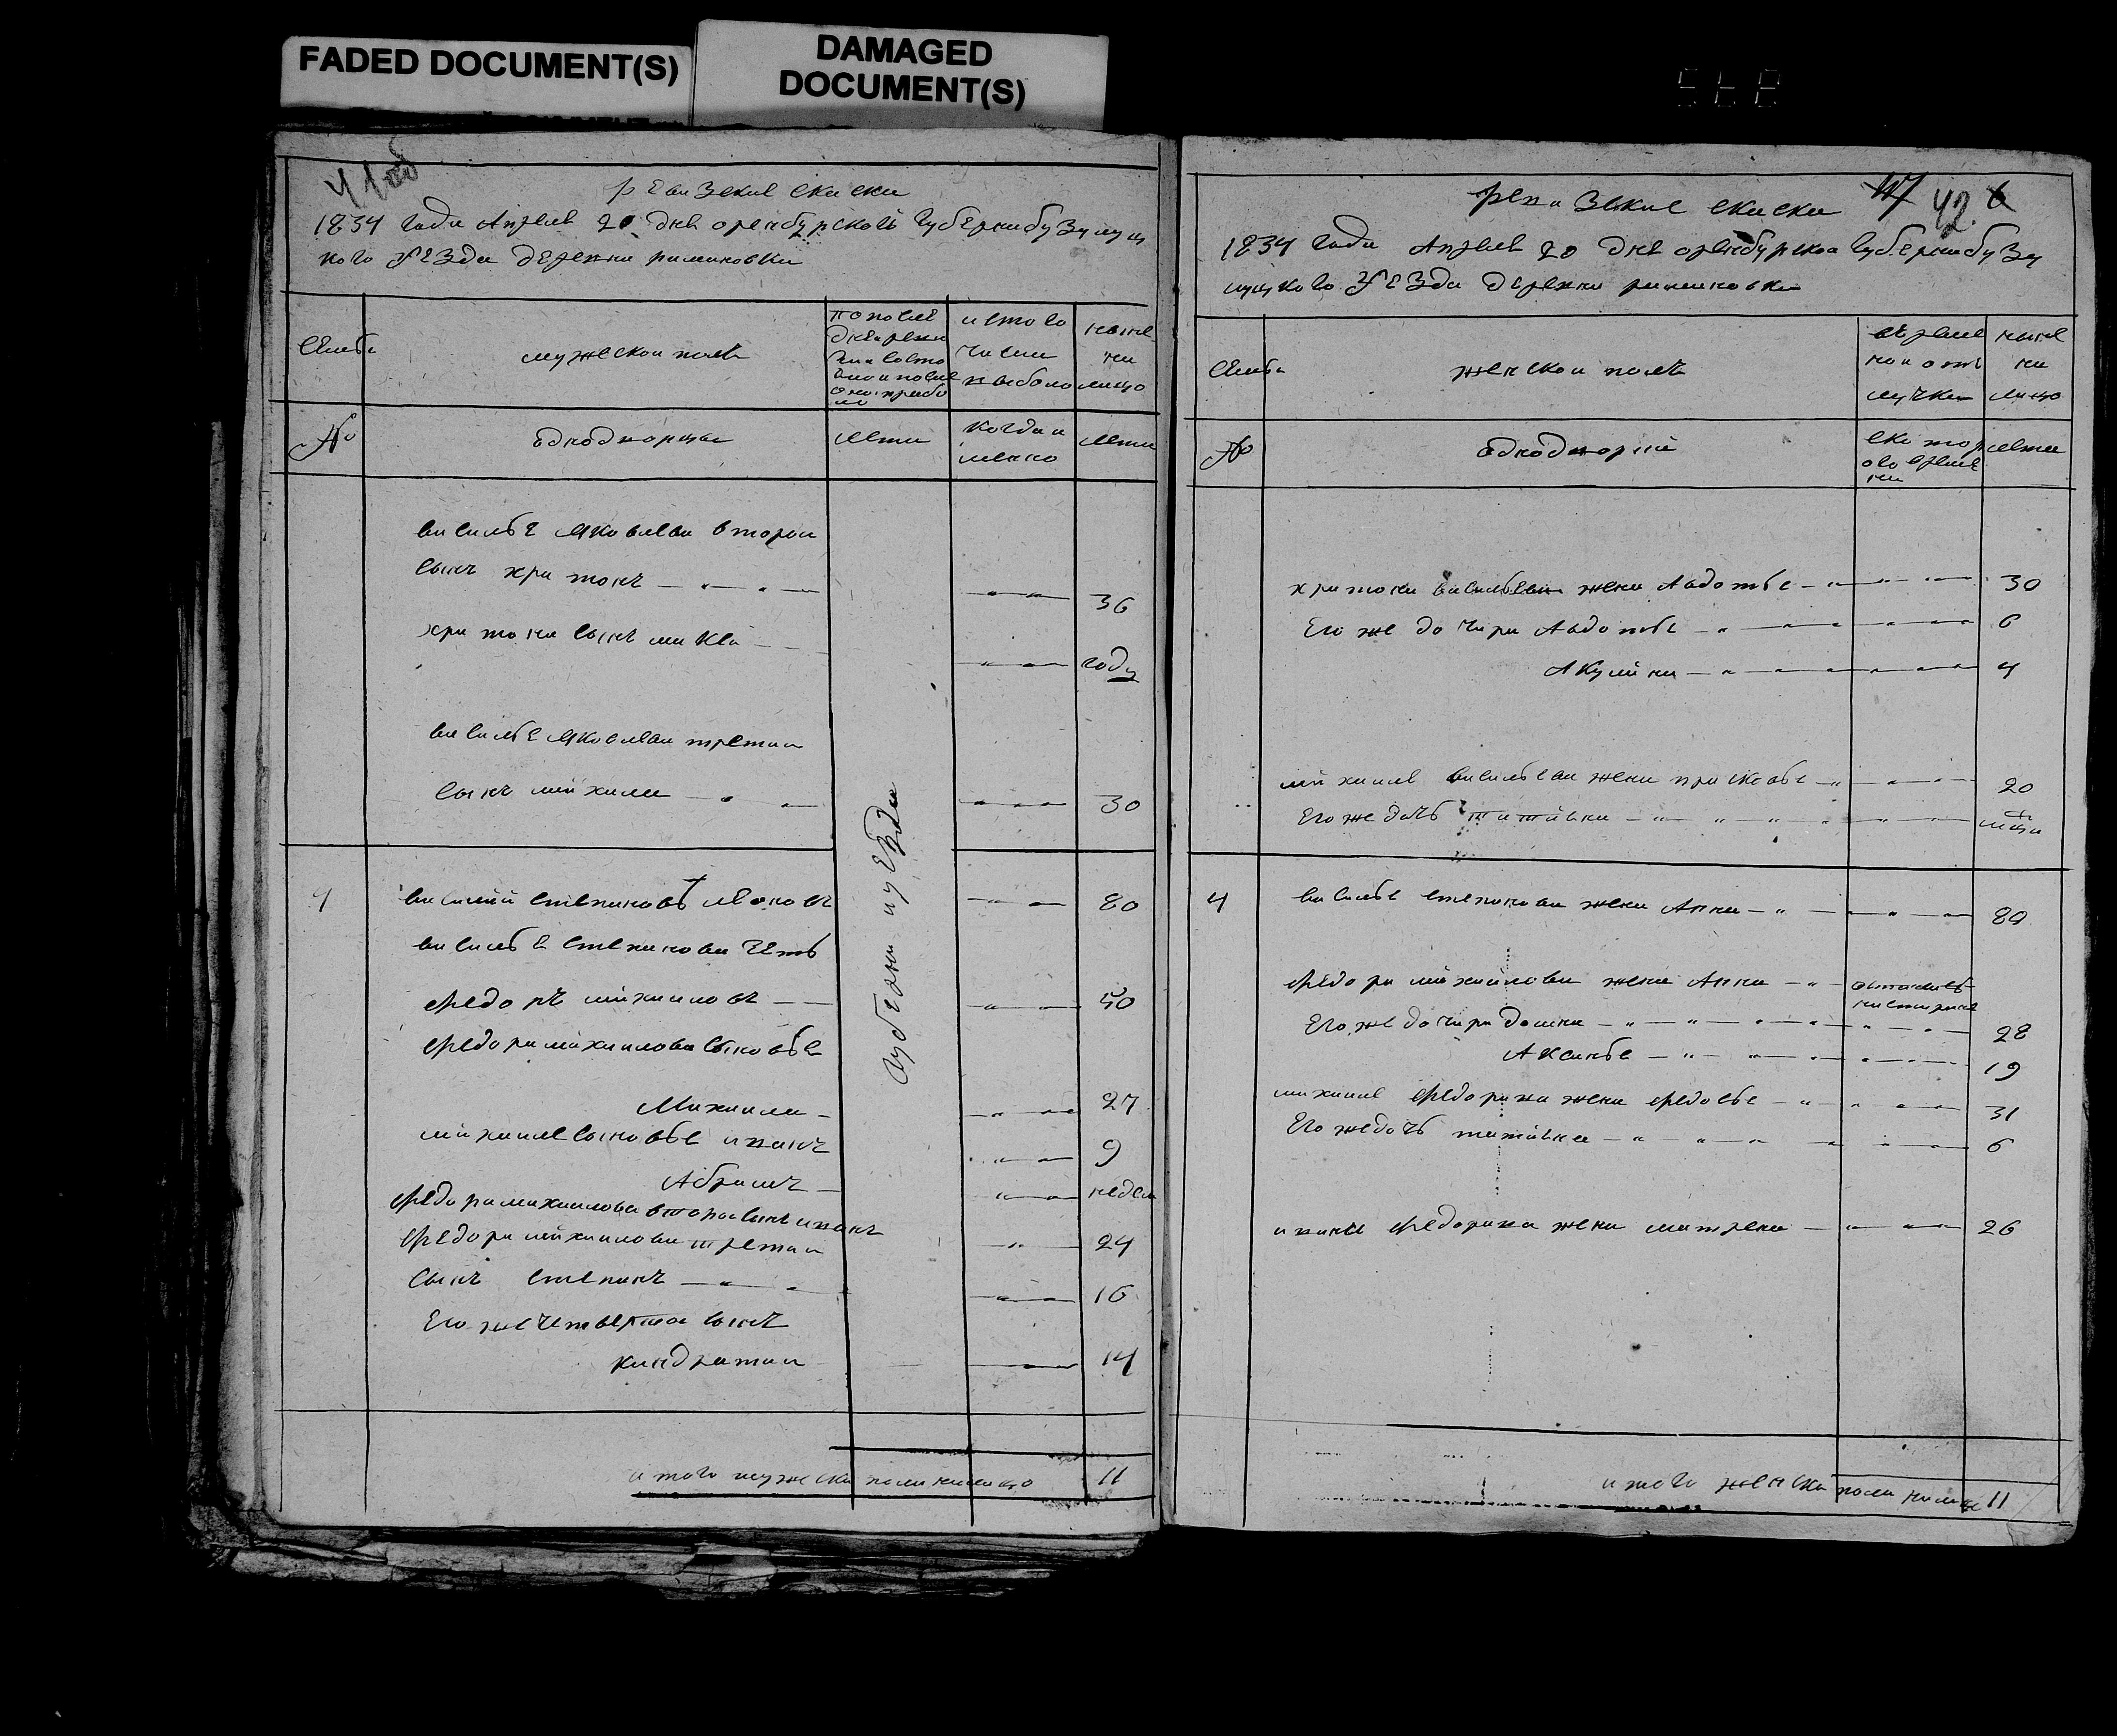 FADED DOCUMENT(S)
DAMAGED
DOCUMENT(S)
41об
ревизские скаски
1834 года Апреля 20 дня оренбурской губернибузулуц
кого уезда деревни
семьи
мужескои полъ
из того
числа
выбыло
ныне
на
лицо
№
однодворцы
лета
когда и
менно
лета
василья яковлева второи
сынъ харитонъ
36
харитона сынъ
году
василья яковлева третии
сынъ михаила
30
4
василий степановъ
80
василья степанова зять
федоръ михаиловъ
50
федора михаилова сыновья
Михаила
27
михаила сыновья иванъ
9
Абрамъ
недел
федора михаилова второи сынъ иванъ
24
федора михаилова третии
сынъ степанъ
16
его же четвертои сынъ
кандратии
14
итого мужеска пола налицо 11
42
ревизские скаски
1834 года Апреля 20 дня оренбурскои губернибузу
луцкого уезда деревни
семьи
женскои полъ
во време
нои отъ
лучке
ныне
на
лицо
№
однодворки
лета
харитона васильева жена Авдотья 30
Его же дочери Авдотья 6
Акулина 4
михаила васильева жена 20
Его же дочь
4
василья степанова жена Анна 80
федора михаилова жена Анна
Его же дочери домна 28
Аксинья 19
михаила федорава жена федосья 31
Его же дочь 6
ивана федорава жена матрена 26
итого женска пола налице 11